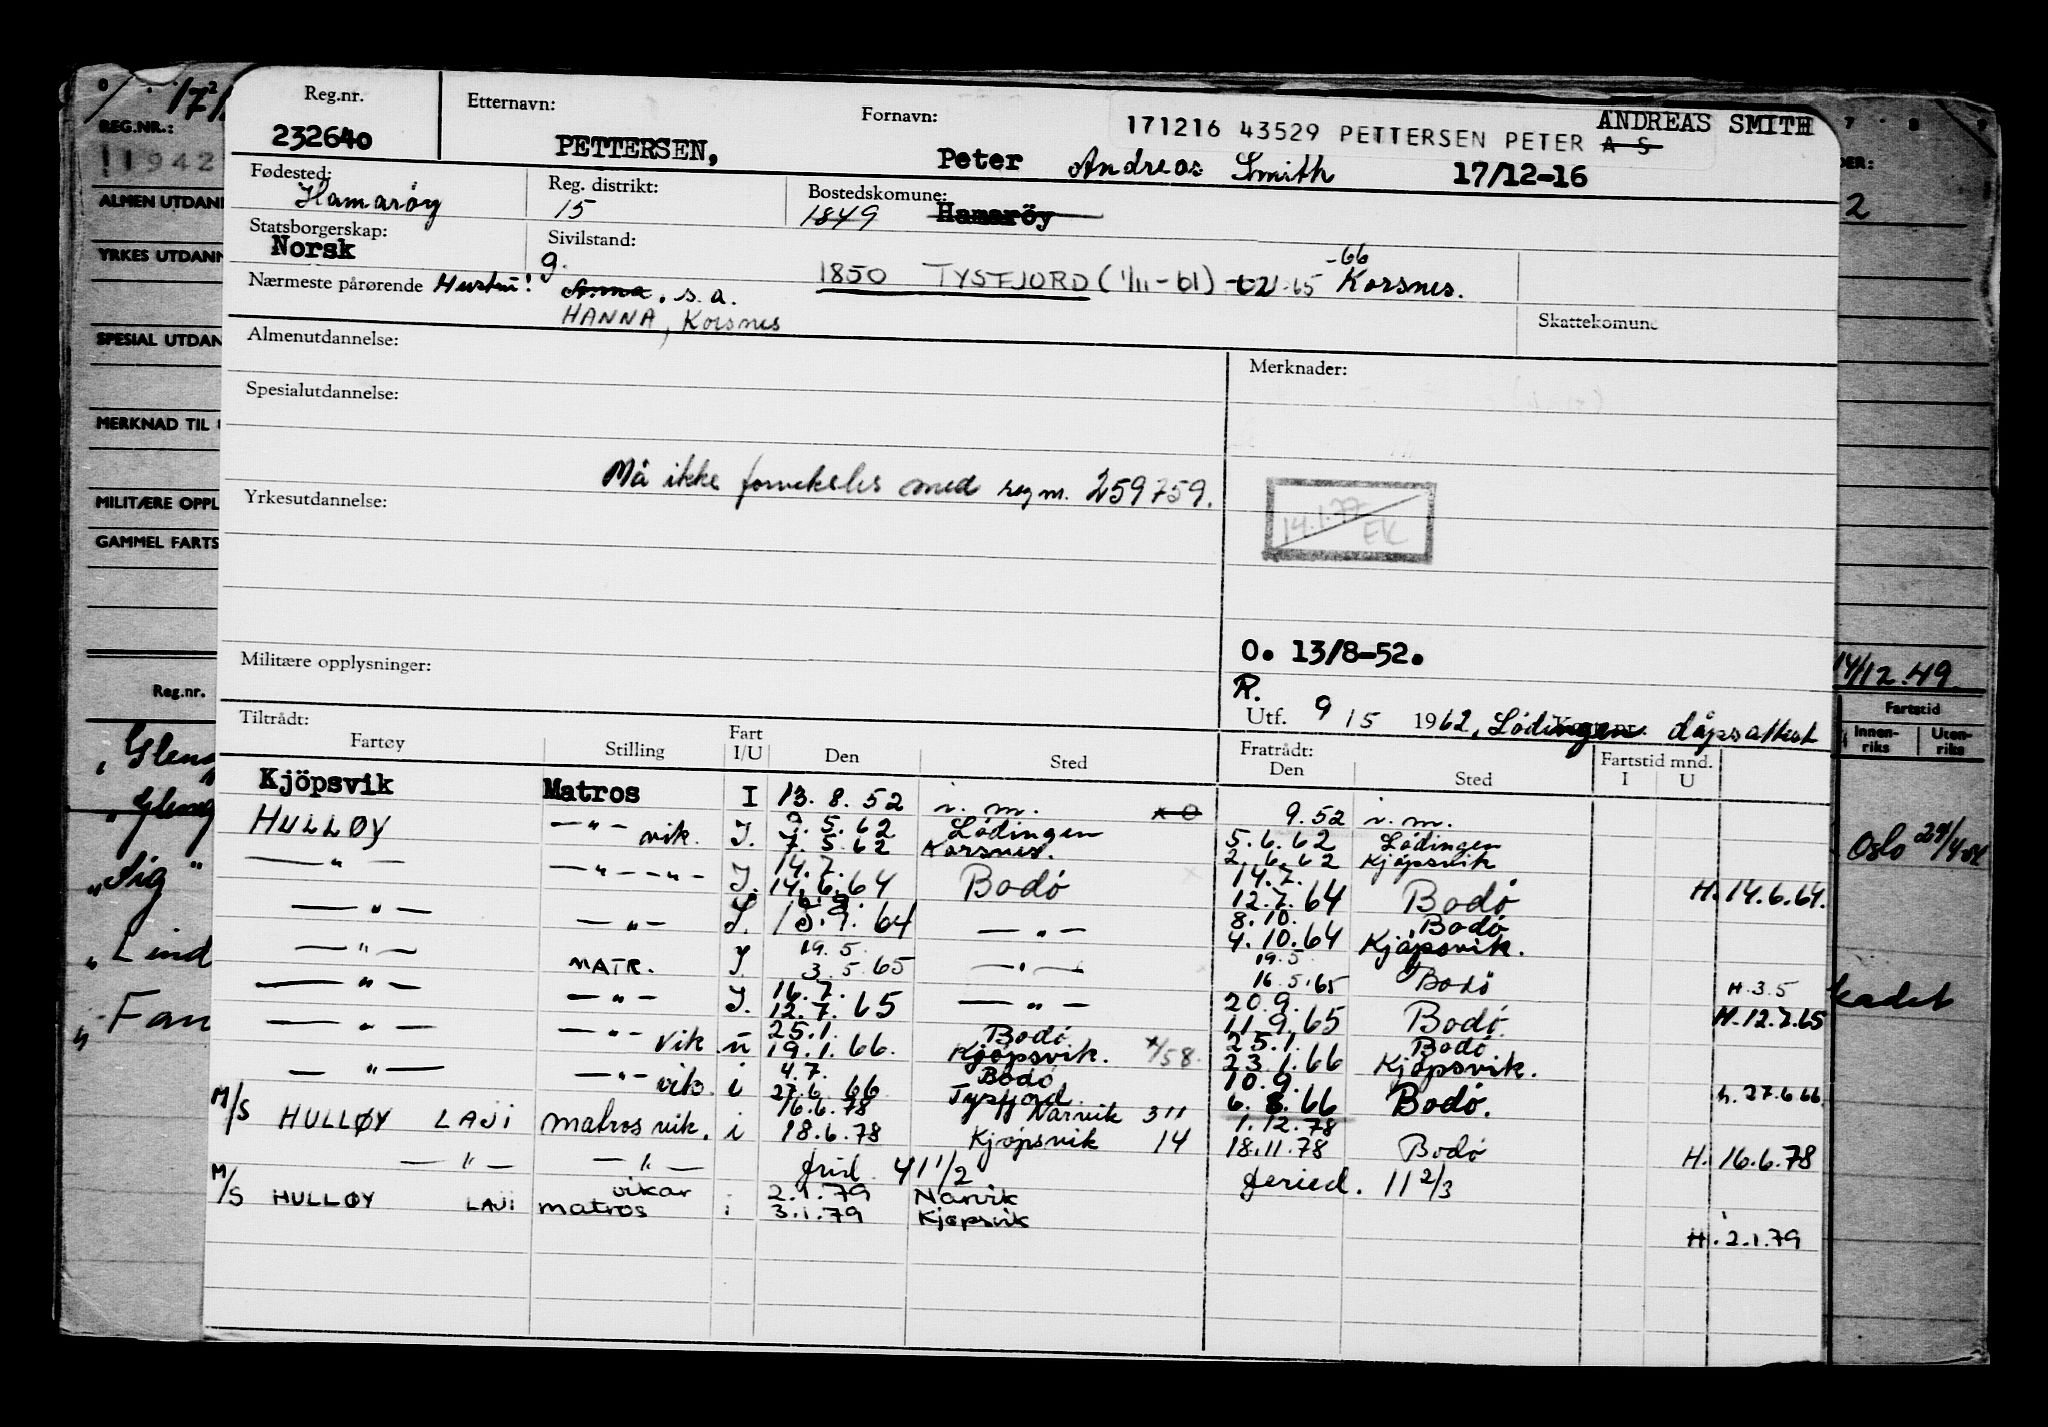 Reg.nr. Etternavn: Fornavn: 171216 43529 PETTERSEN PETER A S ANDREAS SMITH
232640 PETTERSEN, Peter Andreas Smith 17/12-16
Fødested: Hamarøy Reg. distrikt: 15 Bostedskomune: 1849 Hamarøy
Statsborgerskap: Norsk Sivilstand: g.
1850 TYSFJORD (1/11-61) 65 -66 Korsnes.
Nærmeste pårørende Hustru: Anna, s.a.
HANNA, Korsnes
Skattekomune
Almenutdannelse: Merknader:
Spesialutdannelse:
Må ikke forveksles med reg nr. 259759.
Yrkesutdannelse:
14.1.77 EK
O. 13/8-52.
Militære opplysninger: R.
Utf. 9/5 1962, Lødingen dåpsattest
Tiltrådt: Fratrådt:
Fartøy Stilling Fart I/U Den Sted Den Sted Fartstid mnd. I U
Kjöpsvik Matros I 13.8.52 i.m. 9.52 i.m.
HULLØY —"— vik. I. 9.5.62 Lødingen 5.6.62 Lødingen
7.5.62 Korsnes. 2.6.62 Kjøpsvik
—"— —"— —"— I. 14.7. 14.7.
14.6.64 Bodø 12.7.64 Bodø H. 14.6.64.
—"— —"— I. 9.64 —"— 8.10. Bodø
4.10.64 Kjøpsvik.
—"— MATR. I 19.5. 19.5
3.5.65 —"— 16.5.65 Bodø H.3.5
—"— —"— I. 16.7. 20.9.
12.7.65 —"— 11.9.65 Bodø H.12.7.65
—"— —"— vik ü 25.1. Bodø 25.1. Bodø
19.1.66. Kjøpsvik. x/58. 23.1.66 Kjøpsvik.
—"— —"— vik. i 4.7. Bodø 10.9.
27.6.66 Tysfjord 6.8.66 Bodø. h.27.6.66
M/S HULLØY LAJI matros vik. i 16.6.78 Narvik 311 1.12.78
18.6.78 Kjøpsvik 14 18.11.78 Bodø H. 16.6.78
—"— —"— frid. 41 1/2 feried. 11 2/3
M/S HULLØY LAJI vikar matros i 2.1.79 Narvik
3.1.79 Kjøpsvik
H. 2.1.79
REG.NR.:
11942
ALMEN UTDANN
YRKES UTDANN
SPESIAL UTDAN
MERKNAD TIL
MILITÆRE OPPL
GAMMEL FARTS
Reg.nr.
"Sig"
"Lind
2
14/12.49
Fartstid
Innenriks Utenriks
Oslo
kadet